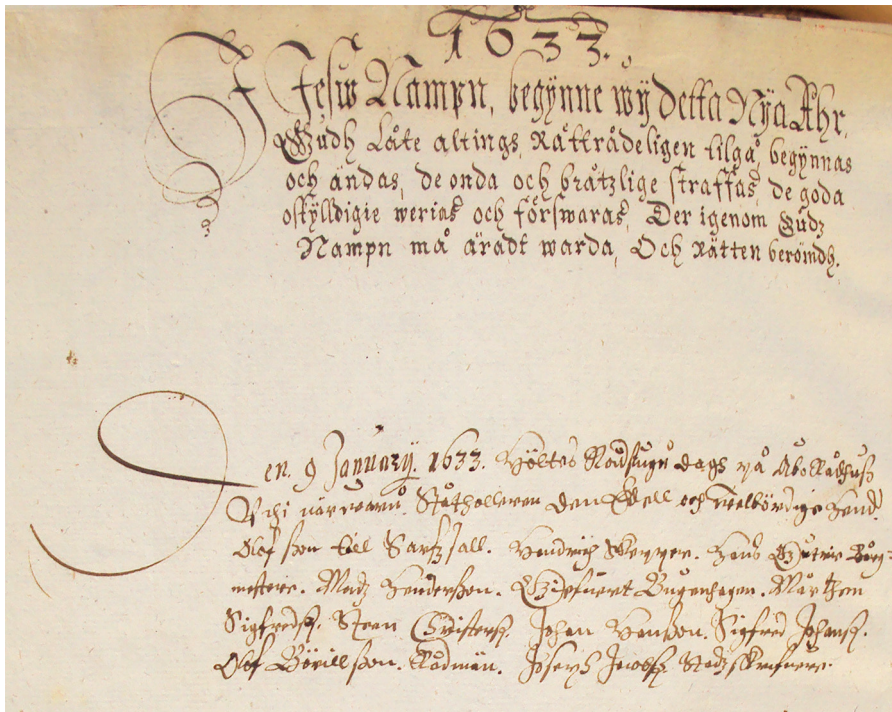 1633.
I Jesw Nampn, begÿnne wÿ detta Nÿa Åhr,
Gudh Låte altings, Rättrådeligen tilgå, begÿnnas
och ändas, de onda och bråtzlige straffas, de goda
oskÿlldigie werias och förswaras, Der igenom Gudz
Nampn må äradt warda, Och Rätten berömdh.
Den 9 Januarÿ. 1633. Höltes Rådstugu dags på Åbo Rådhuß
Uthi närwaru Ståtholleren den Edell och Welbördige Hend
Olofßon till Hendrich Skepper. Hans Borg-
mestere. Madz Henderßon. Bugenhagen. Mårthen
Sigfredß. Steen Christerß. Johan Hanßon. Sigfred Johanß.
Olof Bövillßon. Rådmän. Joseph Jacobß Stadzskrifuere.